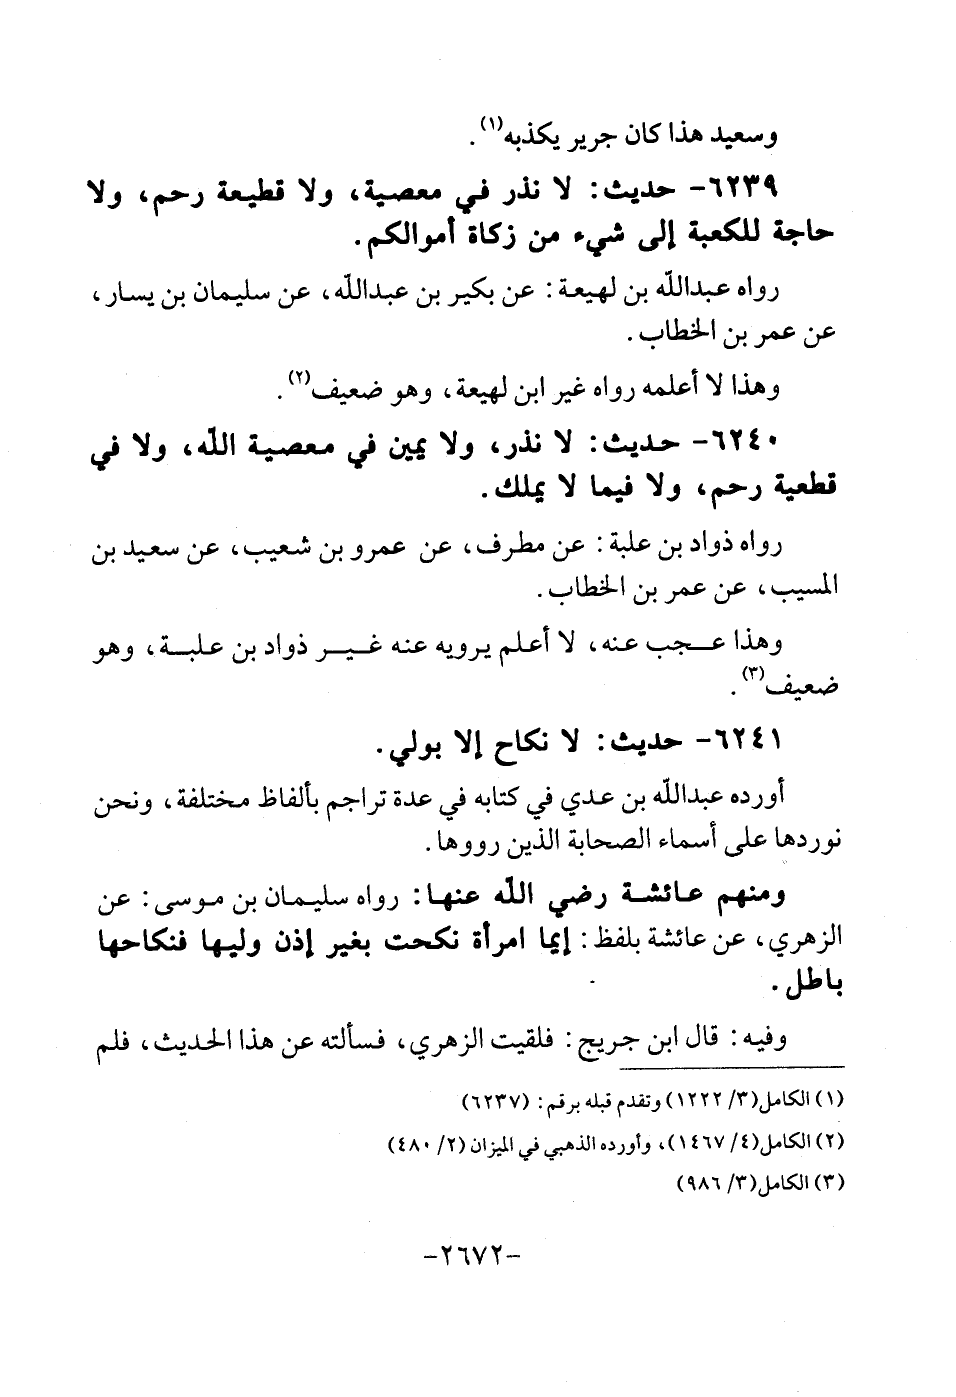 وسعيد هذا كان جرير يكذبه(١).
٦٢٣٩- حديث: لا نذر في معصية، ولا قطيعة رحم، ولا
حاجة للكعبة إلى شيء من زكاة أموالكم.
رواه عبدالله بن لهيعة: عن بكير بن عبدالله، عن سليمان بن يسار،
عن عمر بن الخطاب.
وهذا لا أعلمه رواه غير ابن لهيعة، وهو ضعيف(٢).
٦٢٤٠- حديث: لا نذر، ولا يمين في معصية الله، ولا في
قطعية رحم، ولا فيما لا يملك.
رواه ذواد بن علبة: عن مطرف، عن عمرو بن شعيب، عن سعيد بن
المسيب، عن عمر بن الخطاب.
وهذا عجب عنه، لا أعلم يرويه عنه غير ذواد بن علبة، وهو
ضعيف(٣).
٦٢٤١- حديث: لا نكاح إلا بولي.
أورده عبدالله بن عدي في كتابه في عدة تراجم بألفاظ مختلفة، ونحن
نوردها على أسماء الصحابة الذين رووها.
ومنهم عائشة رضي الله عنها: رواه سليمان بن موسى: عن
الزهري، عن عائشة بلفظ: إيما امرأة نكحت بغير إذن وليها فنكاحها
باطل.
وفيه: قال ابن جريج: فلقيت الزهري، فسألته عن هذا الحديث، فلم
(١) الكامل(٣/ ١٢٢٢) وتقدم قبله برقم: (٦٢٣٧)
(٢) الكامل(٤/ ١٤٦٧)، وأورده الذهبي في الميزان (٢/ ٤٨٠)
(٣) الكامل(٣/ ٩٨٦)
-٢٦٧٢-